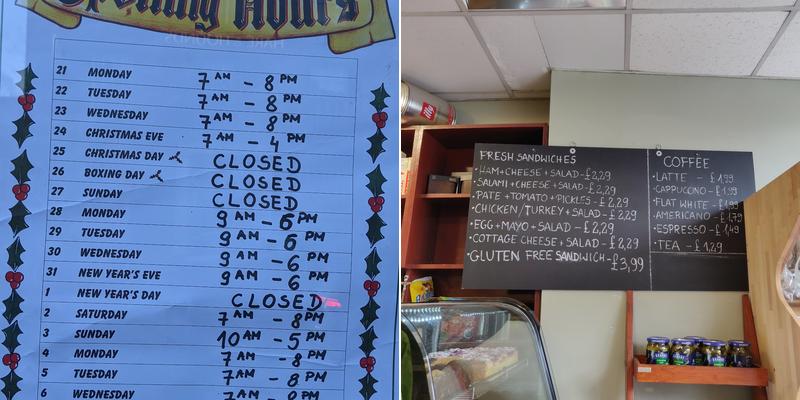 Opening Hours
21 MONDAY 7 AM - 8 PM
22 TUESDAY 7 AM - 8 PM
23 WEDNESDAY 7 AM - 8 PM
24 CHRISTMAS EVE 7 AM - 4 PM
25 CHRISTMAS DAY CLOSED
26 BOXING DAY CLOSED
27 SUNDAY CLOSED
28 MONDAY 9 AM - 6 PM
29 TUESDAY 9 AM - 6 PM
30 WEDNESDAY 9 AM - 6 PM
31 NEW YEAR'S EVE 9 AM - 6 PM
1 NEW YEAR'S DAY CLOSED
2 SATURDAY 7 AM - 8 PM
3 SUNDAY 10 AM - 5 PM
4 MONDAY 7 AM - 8 PM
5 TUESDAY 7 AM - 8 PM
6 WEDNESDAY 7 AM - 8 PM
illy
FRESH SANDWICHES
• HAM+CHEESE+SALAD - £2,29
• SALAMI+CHEESE+SALAD - £2,29
• PATE+TOMATO+PICKLES - £2,29
• CHICKEN/TURKEY+SALAD - £2,29
• EGG+MAYO+SALAD - £2,29
• COTTAGE CHEESE+SALAD - £2,29
• GLUTEN FREE SANDWICH - £3,99
COFFEE
• LATTE - £1,99
• CAPPUCCINO - £1,99
• FLAT WHITE - £1,99
• AMERICANO - £1,79
• ESPRESSO - £1,49
• TEA - £1,29